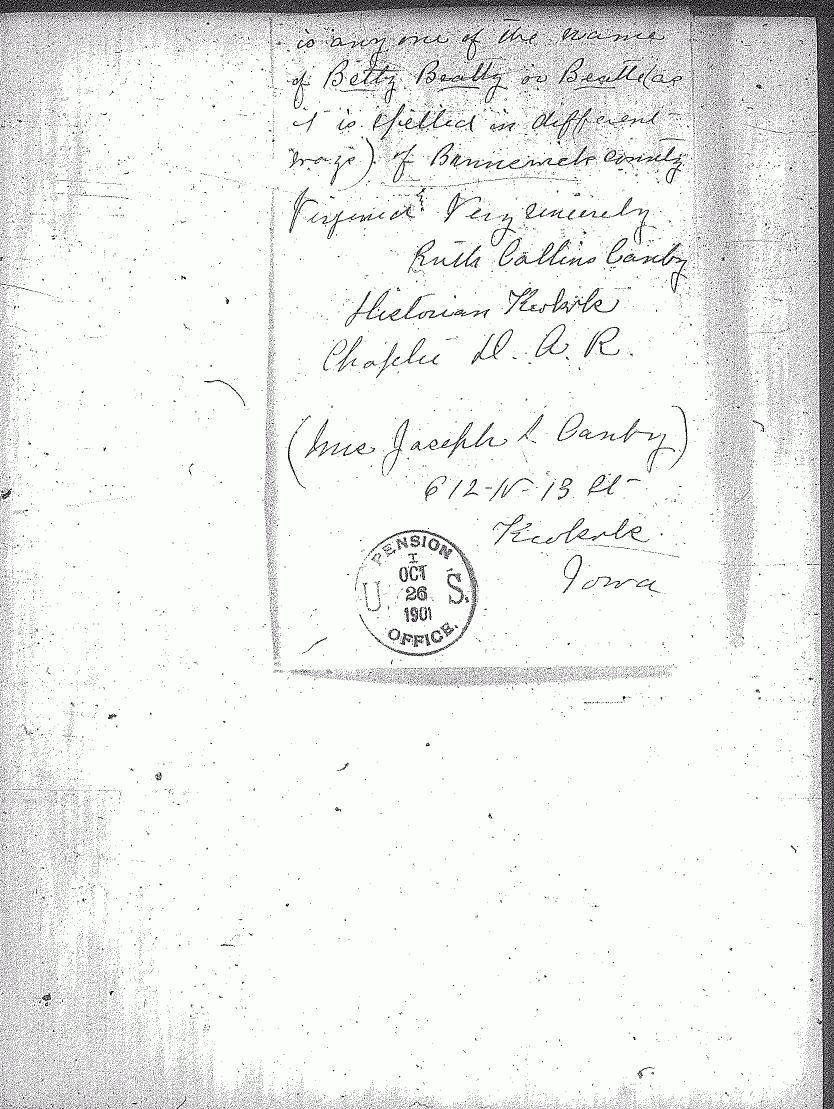 is any one of the name
of Betty Beatty or Beatte (as
it is spelled in different
ways) of Brunswick county
Virginia? Very sincerely
Ruth Collins Canby
Historian Keokuk
Chapter D. A. R.
(Mrs Joseph L Canby)
612-N-13 St-
Keokuk.
Iowa
PENSION
I
OCT
U 26 S.
1901
OFFICE.